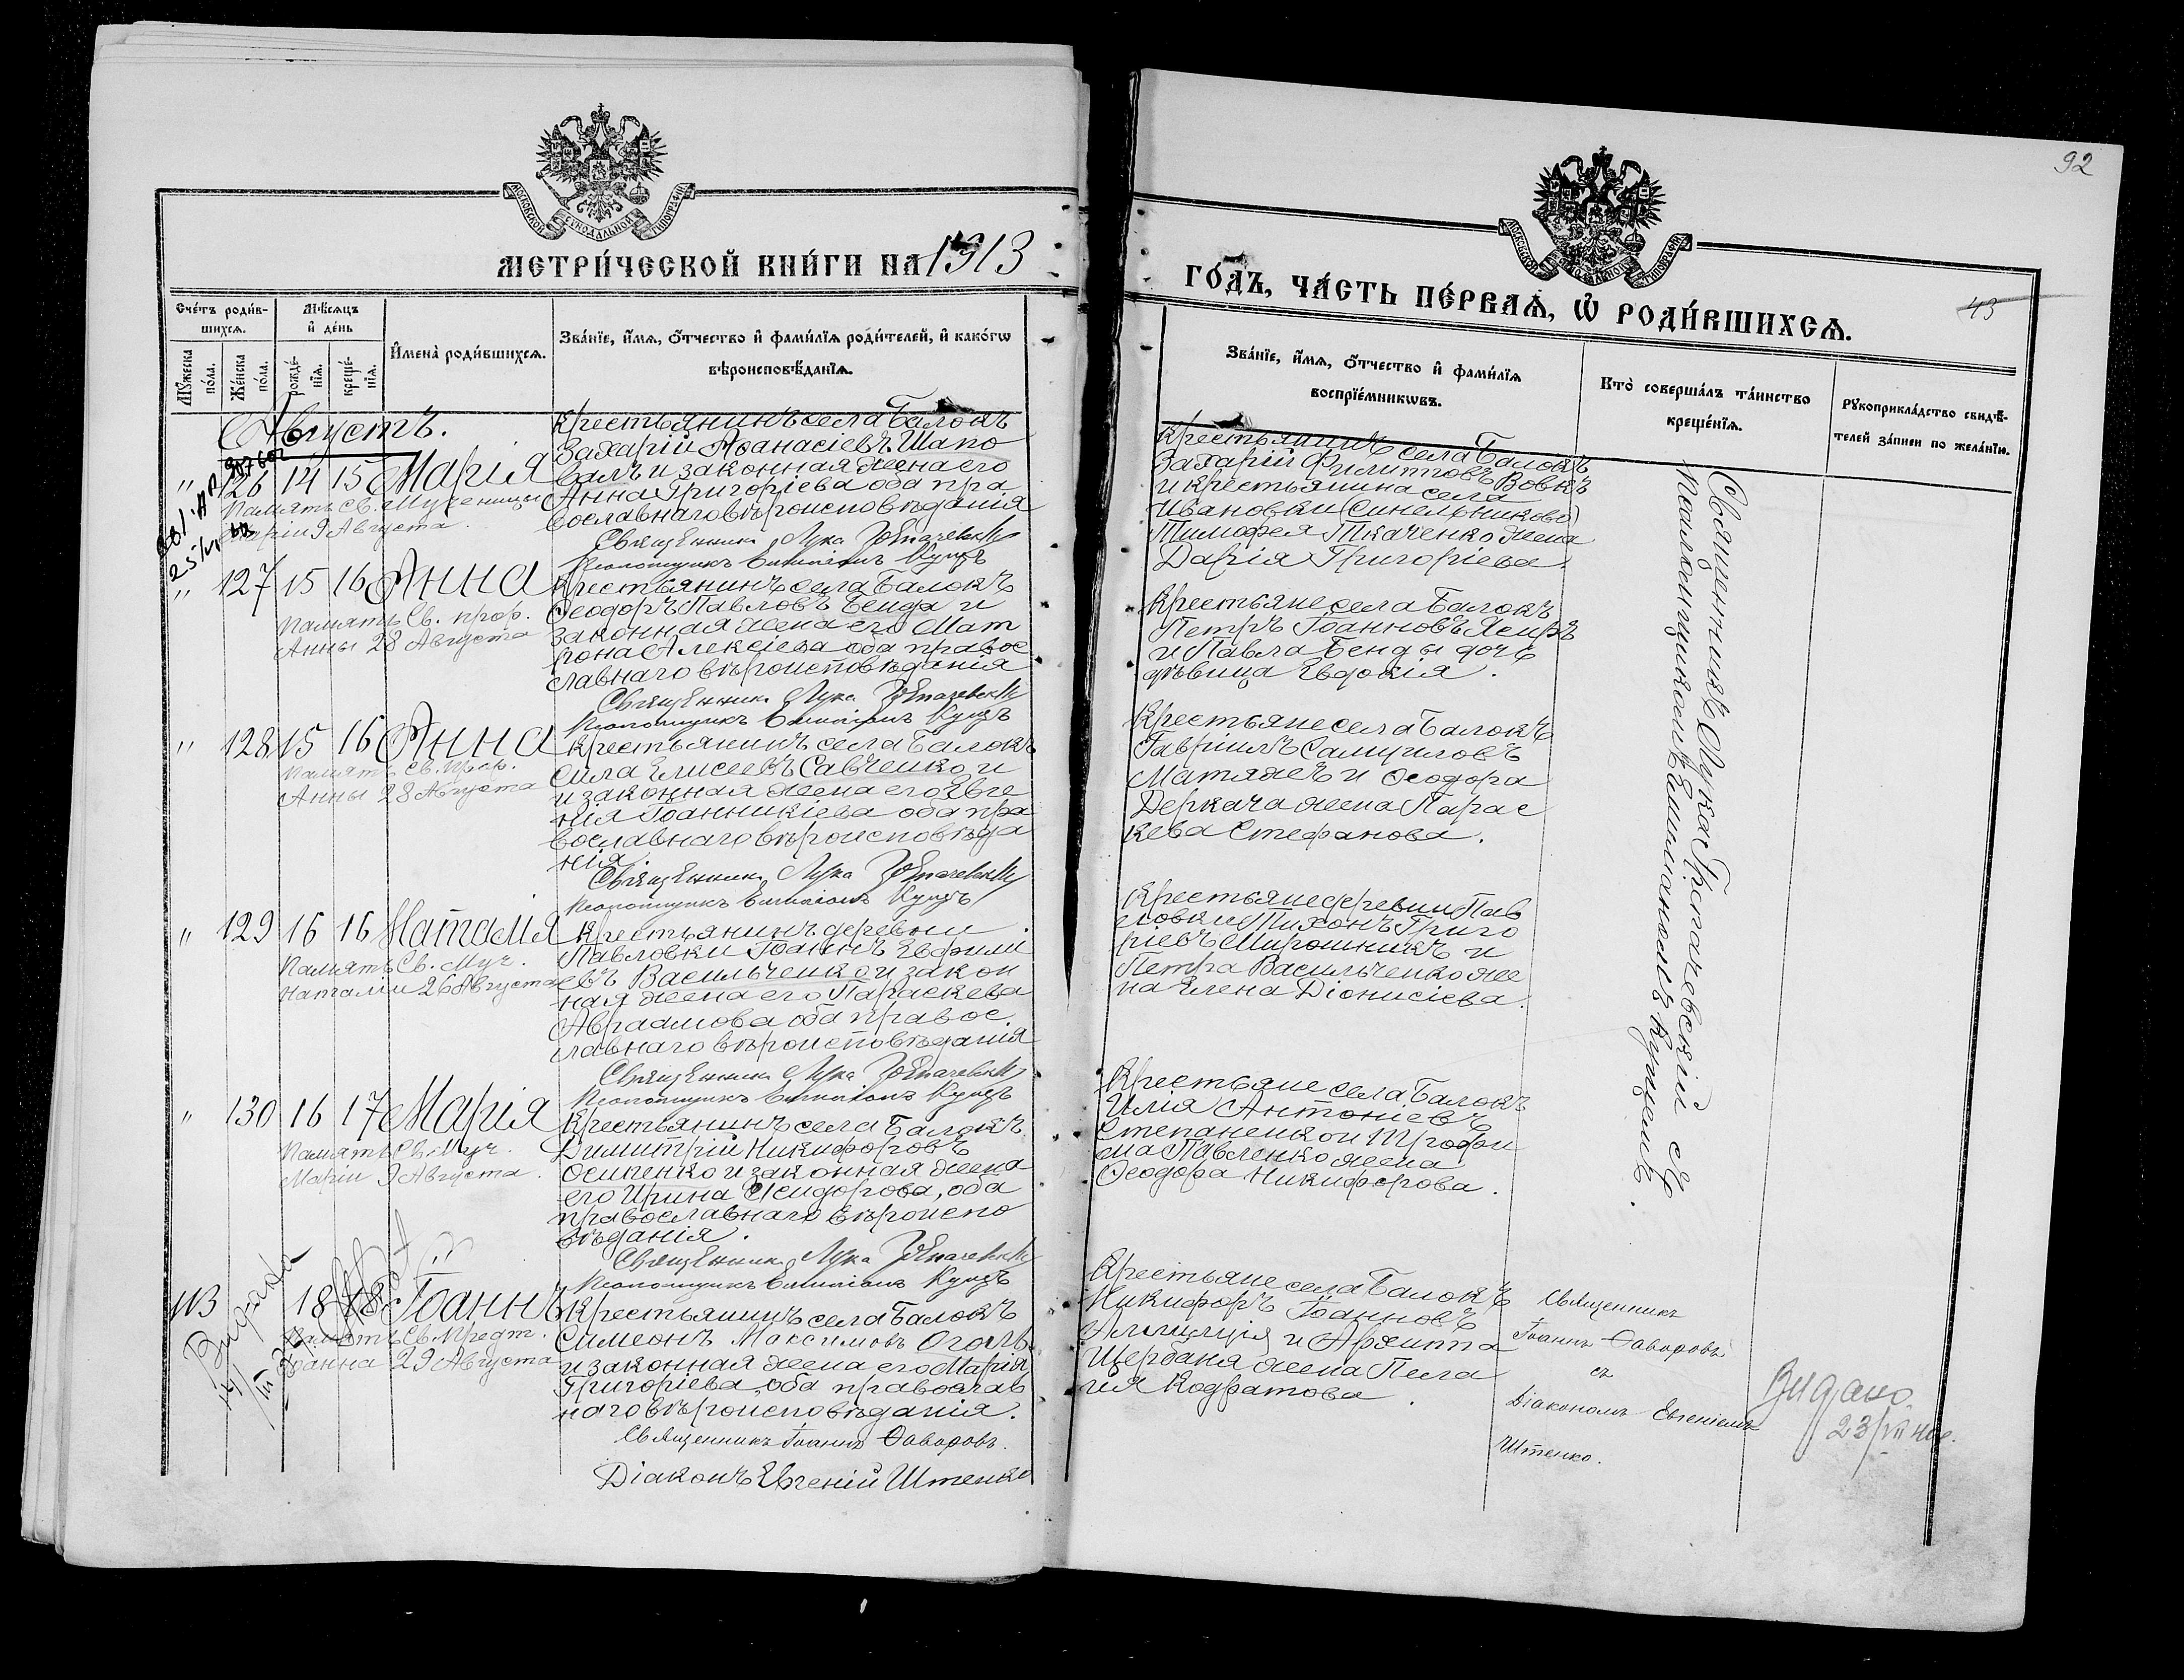 92
МОСКОВСКОЙ СИНОДАЛЬНОЙ ТИПОГРАФІИ
МЕТРИ́ЧЕСКОЙ КНИ́ГИ НА 1913
ГО́ДЪ, ЧА́СТЬ ПЕ́РВАѦ, Ѡ҆ РОДИ́ВШИХСѦ.
43
Сче́тъ роди́в-
шихсѧ.
Мѣ́сѧцъ
и҆ де́нь
Мꙋ́жеска по́ла.
Же́нска по́ла.
рожде́-нїѧ.
креще́-нїѧ.
И҆мена̀ роди́вшихсѧ.
Зва́нїе, и҆́мѧ, ѻ҆́тчество и҆ фами́лїѧ роди́телей, и҆ како́гѡ
вѣроисповѣ́данїѧ.
Зва́нїе, и҆́мѧ, ѻ҆́тчество и҆ фами́лїѧ
воспрїе́мникѡвъ.
Кто̀ соверша́лъ та́инство
креще́нїѧ.
Рꙋкоприкла́дство свидѣ́-
телей за́писи по жела́нїю.
Августъ.
" 126 14 15 Марія
Память Св. Мученицы
Маріи 9 Августа.
Крестьянинъ села Балокъ
Захарій Аѳанасіевъ Шапо
валъ и законная жена его
Анна Григоріева оба пра
вославнаго вѣроисповѣданія
Священникъ Лука
Псаломщикъ Емиліанъ Куцъ
Крестьянинъ села Балокъ
Захарій Филипповъ Вовкъ
и крестьянина села
Ивановки (Синельниково)
Тимофея Ткаченко жена
Дарія Григоріева.
" 127 15 16 Анна
Память Св. прор.
Анны 28 Августа
Крестьянинъ села Балокъ
Ѳеодоръ Павловъ Бенда и
законная жена его Мат
рона Алексіева оба правос
славнаго вѣроисповѣданія
Священникъ Лука
Псаломщикъ Емиліанъ Куцъ
Крестьяне села Балокъ
Петръ Іоанновъ
и Павла Бенды дочь
дѣвица Евдокія.
" 128 15 16 Анна
Память Св. Прор.
Анны 28 Августа
Крестьянинъ села Балокъ
Сила Елисеевъ Савченко и
и законная жена его Евге
нія Іоанникіева оба пра
вославнаго вѣроисповѣда
нія.
Священникъ Лука
Псаломщикъ Емиліанъ Куцъ
Крестьяне села Балокъ
Гавріилъ Самуиловъ
Матяжъ и Ѳеодора
Деркача жена Парас
кева Стефанова.
" 129 16 16 Наталія
Память Св. Муч.
Наталіи 26 Августа
Крестьянинъ деревни
Павловки Іоаннъ Евфимі
евъ Васильченко и закон
ная жена его Параскева
Авраамова оба правос
лавнаго вѣроисповѣданія
Священникъ Лука
Псаломщикъ Емиліанъ Куцъ
Крестьяне деревни Пав
ловки Тихонъ Григо
ріевъ Мирошникъ и
Петра Васильченко же
на Елена Діонисіева.
" 130 16 17 Марія
Память Св. Муч.
Маріи 9 Августа.
Крестьянинъ села Балокъ
Димитрій Никифоровъ
Осипенко и законная жена
его Ирина Исидорова, оба
православнаго вѣроиспо
вѣданія.
Священникъ Лука
Псаломщикъ Емиліанъ Куцъ
Крестьяне села Балокъ
Илія Антоніевъ
Степаненко и Трофи
ма Павленко жена
Ѳеодора Никифорова.
113 18 18 Іоаннъ
Память Св. Предт.
Іоанна 29 Августа
Крестьянинъ села Балокъ
Симеонъ Максимовъ Оголь
и законная жена его Марія
Григоріева, оба православ
наго вѣроисповѣданія.
Священникъ Іоаннъ Ѳаворовъ.
Діаконъ Евгеній Штенко
Крестьяне села Балокъ
Никифоръ Іоанновъ
и Архиппа
Щербаня жена Пела
гія Кодратова.
Священникъ
Іоаннъ Ѳаворовъ
съ
Діакономъ Евгеніемъ
Штенко.
Священникъ Лука съ
Псаломщикомъ Емиліаномъ Куцемъ.
Видано